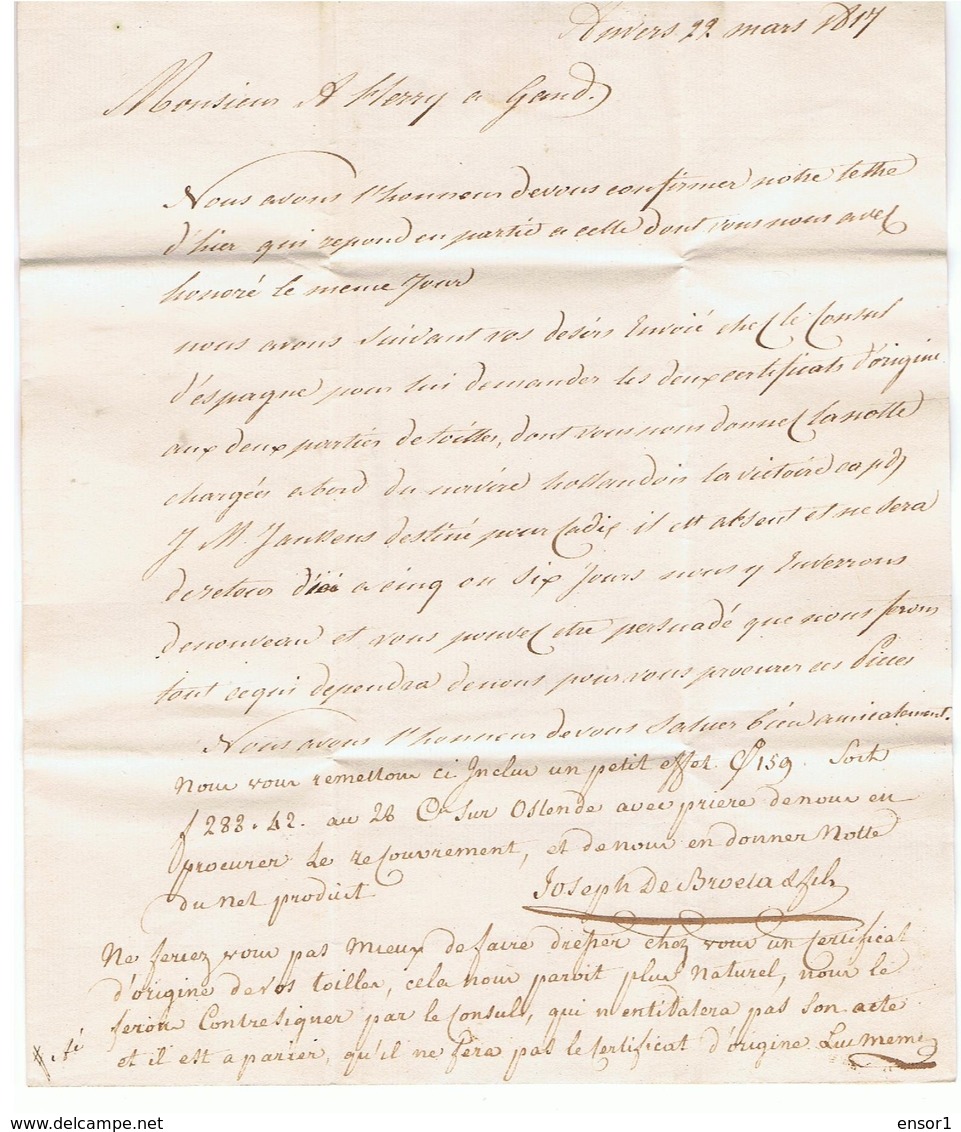 Anvers 22 mars 1817
Monsieur A Herry a Gand.
Nous avons l'honneur de vous confirmer notre lettre
d'hier qui repond en partie a celle dont vous nous avez
honoré le meme Jour
nous avons suivant vos desirs Envoié chez le Consul
d'espagne pour lui demander les deux certificats d'origine
aux deux parties de toilles, dont vous nous donnez la notte
chargées a bord du navire hollandois la victoire cap
J M Janssens destiné pour Cadix il est absent et ne sera
de retour d'ici a cinq ou six Jours nous y Enverrons
denouveau et vous pouvez etre persuadé que nous ferons
tout ce qui dependra denous pour vous procurer ces Pieces
Nous avons l'honneur de vous saluer bien amicalement.
Nous vous remettons ci Inclus un petit effet 159 Soit
f 283.42. au 28 Ct sur Ostende avec priere denous en
procurer Le recouvrement, et denous en donner Notte
du net produit
Joseph De Broeta & fils
Ne feriez vous pas mieux de faire dresser chez vous un Certificat
d'origine de vos toilles, cela nous paroit plus Naturel, nous le
ferons Contresigner par le Consul, qui n'entitatera pas son acte
et il est a parier, qu'il ne fera pas le Certificat d'origine Lui meme
ensor1